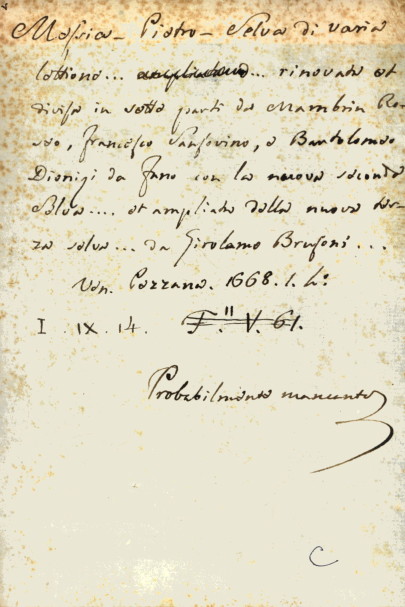 Messia - Pietro - Selva di varia
lettione... ... rinovata et
divisa in sette parti da Mambrin Ro-
seo, Francesco Sansovino, e Bartolomeo
Dionigi da Fano con la nuova seconda
Selva.... et ampliata della nuova ter-
za selva... da Girolamo Brusoni...
Ven. Pezzana. 1668. 1. 4°.
I. IX. 14. F." V. 61.
Probabilmente mancante
C